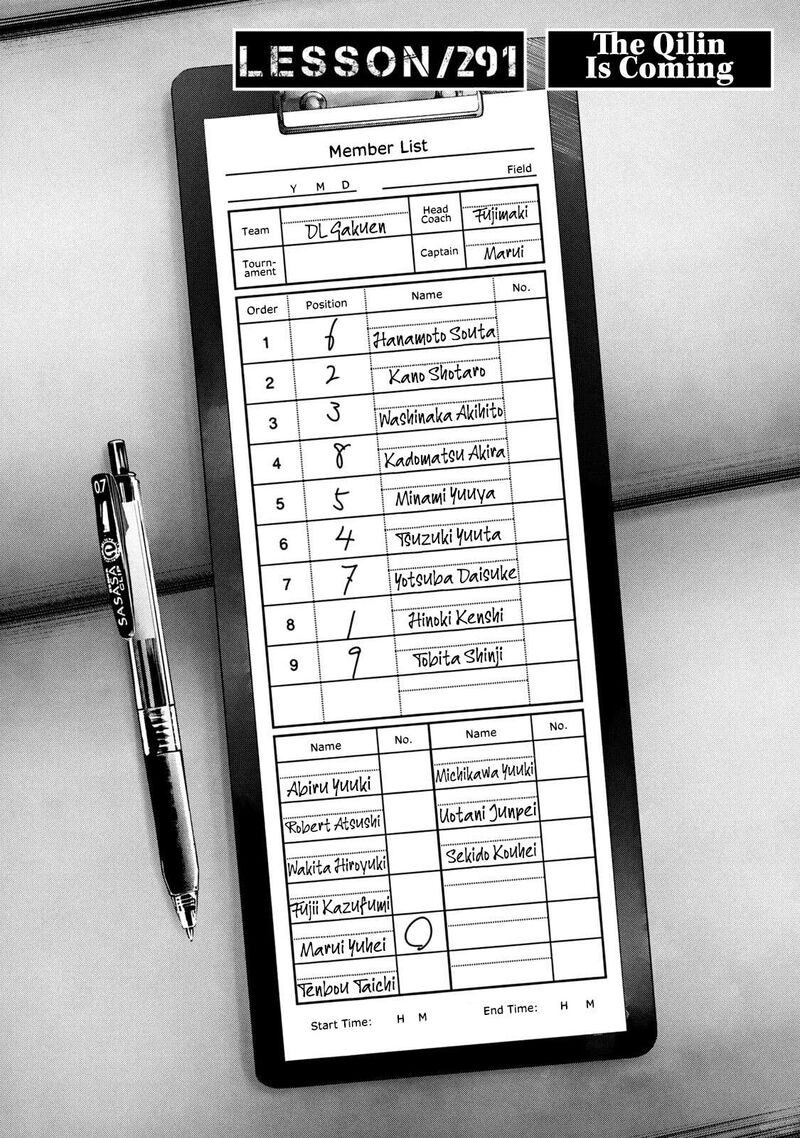 LESSON/291
The Qilin
Is Coming
Member List
Y M D Field
Team DL Gakuen Head Coach Fujimaki
Tourn-ament Captain Marui
Order Position Name No.
1 6 Hanamoto Souta
2 2 Kano Shotaro
3 3 Washinaka Akihito
4 8 Kadomatsu Akira
5 5 Minami Yuuya
6 4 Tsuzuki Yuuta
7 7 Yotsuba Daisuke
8 1 Hinoki Kenshi
9 9 Tobita Shinji
Name No. Name No.
Abiru Yuuki Michikawa Yuuki
Robert Atsushi Uotani Junpei
Wakita Hiroyuki Sekido Kouhei
Fujii Kazufumi
Marui Yuhei O
Tenbou Taichi
Start Time: H M End Time: H M
07
SASASA
CLIP